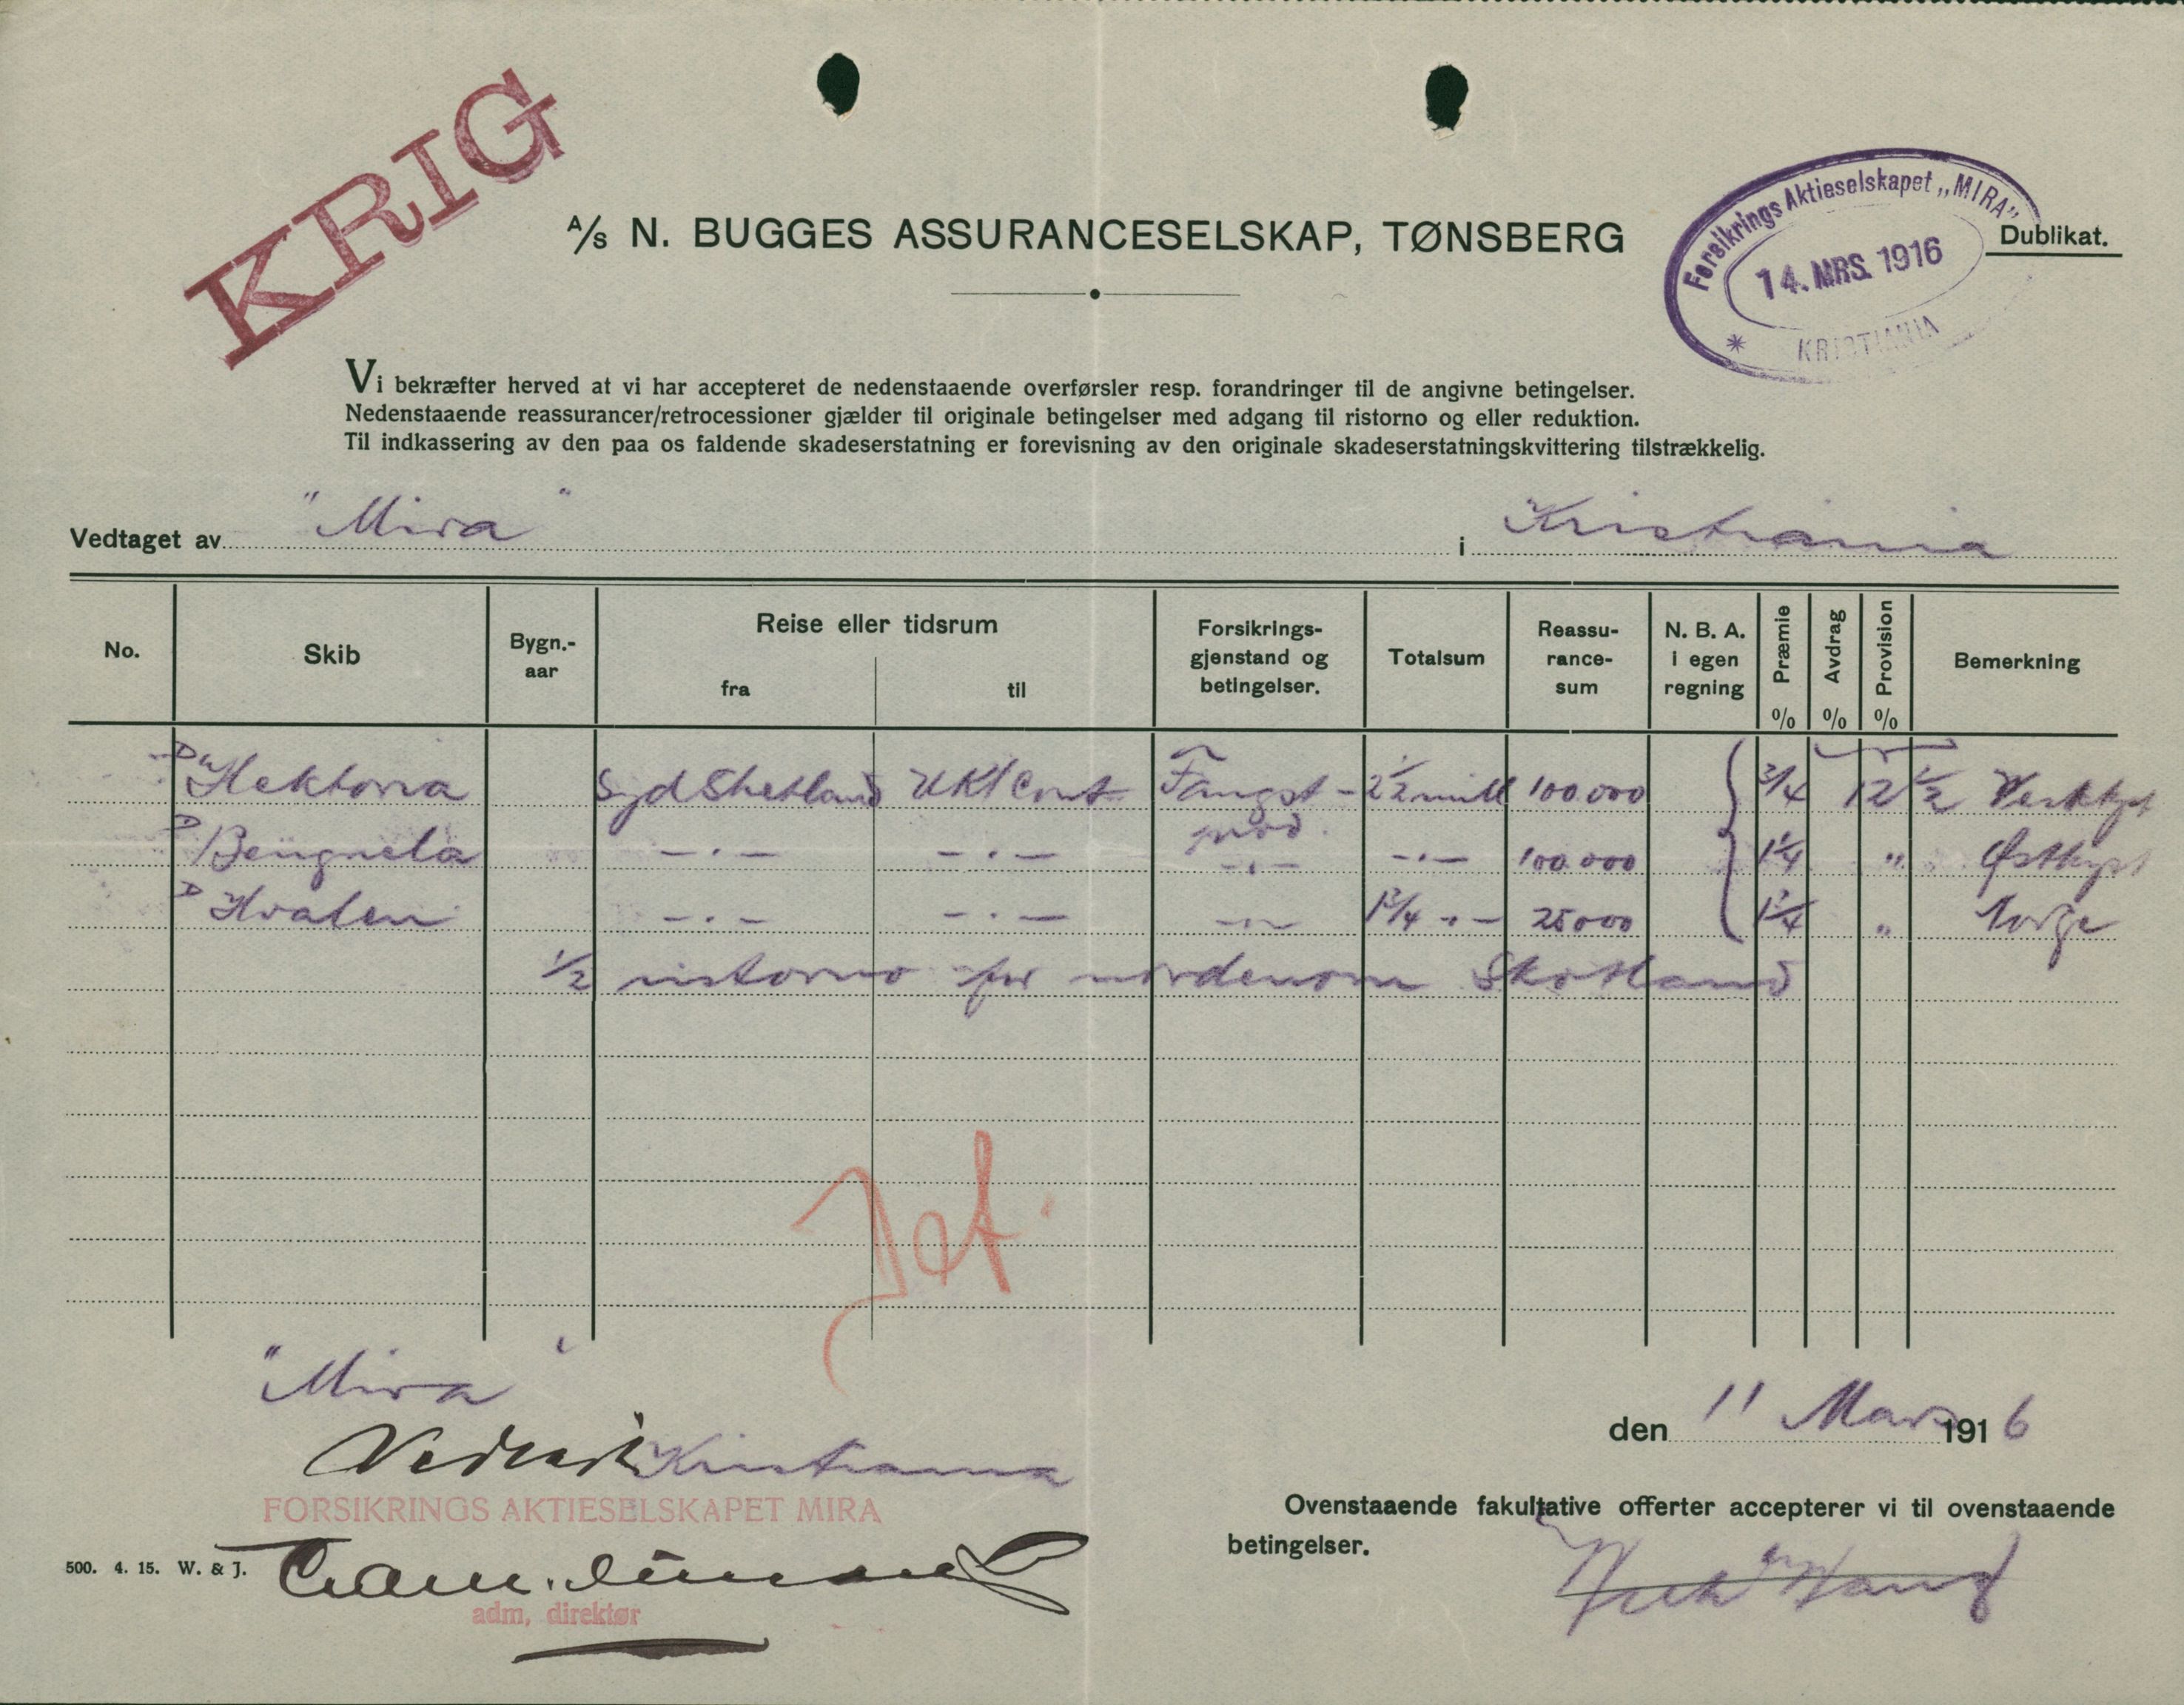 KRIG
A/S N. BUGGES ASSURANCESELSKAP, TØNSBERG
Forsikrings Aktieselskapet „MIRA"
14. MRS. 1916
* KRISTIANIA
Dublikat.
Vi bekræfter herved at vi har accepteret de nedenstaaende overførsler resp. forandringer til de angivne betingelser.
Nedenstaaende reassurancer/retrocessioner gjælder til originale betingelser med adgang til ristorno og eller reduktion.
Til indkassering av den paa os faldende skadeserstatning er forevisning av den originale skadeserstatningskvittering tilstrækkelig.
Vedtaget av "Mira" i Kristiania
No. Skib Bygn.-aar Reise eller tidsrum fra til Forsikrings-gjenstand og betingelser. Totalsum Reassu-rance-sum N. B. A. i egen regning Præmie % Avdrag % Provision % Bemerkning
D Hektoria Syd Shetland UK/Cont Fangst- 2 1/2 mill 100.000 3/4 12 1/2 Vestkyst
D Benguela —·— —·— —·— —·— 100.000 1 1/4 " Østkyst
D Hvalen —·— —·— —·— 1 3/4 —·— 25000 " Norge
1/2 ristorno for nordenom Skotland
"Mira"
Kristiania
FORSIKRINGS AKTIESELSKAPET MIRA
adm, direktør
500. 4. 15. W. & J.
den 11 Mars 1916
Ovenstaaende fakultative offerter accepterer vi til ovenstaaende
betingelser.